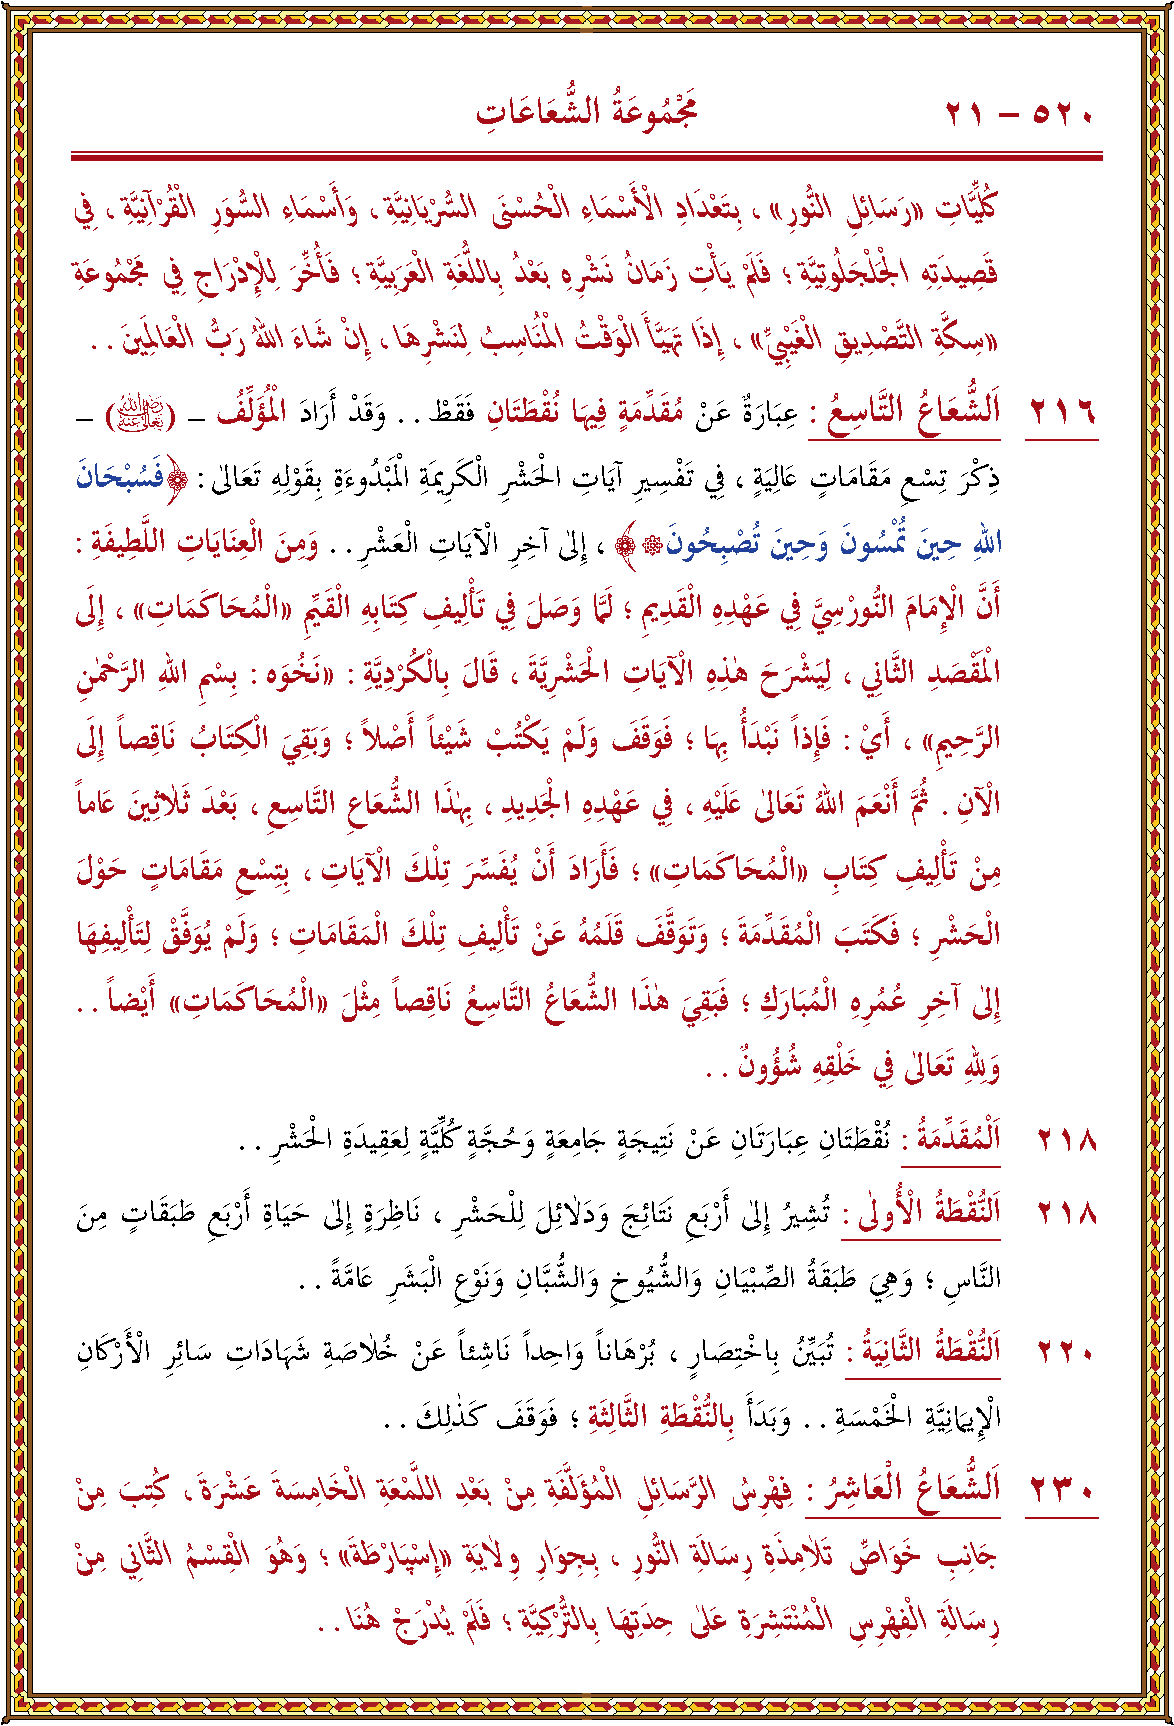 ٥٢٠ – ٢١ مَجْمُوعَةُ الشُّعَاعَاتِ
كُلِّيَّاتِ «رَسَائِلِ النُّورِ» ، بِتَعْدَادِ الْأَسْمَاءِ الْحُسْنَى السُّرْيَانِيَّةِ ، وَأَسْمَاءِ السُّوَرِ الْقُرْآنِيَّةِ ، فِي
قَصِيدَتِهِ الْجَلْجَلُوتِيَّةِ ؛ فَلَمْ يَأْتِ زَمَانُ نَشْرِهِ بَعْدُ بِاللُّغَةِ الْعَرَبِيَّةِ ؛ فَأُخِّرَ لِلْإِدْرَاجِ فِي مَجْمُوعَةِ
«سِكَّةِ التَّصْدِيقِ الْغَيْبِيِّ» ، إِذَا تَهَيَّأَ الْوَقْتُ الْمُنَاسِبُ لِنَشْرِهَا ، إِنْ شَاءَ اللهُ رَبُّ الْعَالَمِينَ . .
٢١٦ اَلشُّعَاعُ التَّاسِعُ : عِبَارَةٌ عَنْ مُقَدِّمَةٍ فِيهَا نُقْطَتَانِ فَقَطْ . . وَقَدْ أَرَادَ الْمُؤَلِّفُ – (رَضِيَ اللهُ تَعَالَى عَنْهُ) –
ذِكْرَ تِسْعِ مَقَامَاتٍ عَالِيَةٍ ، فِي تَفْسِيرِ آيَاتِ الْحَشْرِ الْكَرِيمَةِ الْمَبْدُوءَةِ بِقَوْلِهِ تَعَالىٰ : ﴿فَسُبْحَانَ
اللهِ حِينَ تُمْسُونَ وَحِينَ تُصْبِحُونَ۞﴾ ، إِلىٰ آخِرِ الْآيَاتِ الْعَشْرِ . . وَمِنَ الْعِنَايَاتِ اللَّطِيفَةِ :
أَنَّ الْإِمَامَ النُّورْسِيَّ فِي عَهْدِهِ الْقَدِيمِ ؛ لَمَّا وَصَلَ فِي تَأْلِيفِ كِتَابِهِ الْقَيِّمِ «الْمُحَاكَمَاتِ» ، إِلَى
الْمَقْصَدِ الثَّانِي ، لِيَشْرَحَ هٰذِهِ الْآيَاتِ الْحَشْرِيَّةَ ، قَالَ بِالْكُرْدِيَّةِ : «نَخُوَه : بِسْمِ اللهِ الرَّحْمٰنِ
الرَّحِيمِ» ، أَيْ : فَإِذاً نَبْدَأُ بِهَا ؛ فَوَقَفَ وَلَمْ يَكْتُبْ شَيْئاً أَصْلاً ؛ وَبَقِيَ الْكِتَابُ نَاقِصاً إِلَى
الْآنِ . ثُمَّ أَنْعَمَ اللهُ تَعَالىٰ عَلَيْهِ ، فِي عَهْدِهِ الْجَدِيدِ ، بِهٰذَا الشُّعَاعِ التَّاسِعِ ، بَعْدَ ثَلاٰثِينَ عَاماً
مِنْ تَأْلِيفِ كِتَابِ «الْمُحَاكَمَاتِ» ؛ فَأَرَادَ أَنْ يُفَسِّرَ تِلْكَ الْآيَاتِ ، بِتِسْعِ مَقَامَاتٍ حَوْلَ
الْحَشْرِ ؛ فَكَتَبَ الْمُقَدِّمَةَ ؛ وَتَوَقَّفَ قَلَمُهُ عَنْ تَأْلِيفِ تِلْكَ الْمَقَامَاتِ ؛ وَلَمْ يُوَفَّقْ لِتَأْلِيفِهَا
إِلىٰ آخِرِ عُمُرِهِ الْمُبَارَكِ ؛ فَبَقِيَ هٰذَا الشُّعَاعُ التَّاسِعُ نَاقِصاً مِثْلَ «الْمُحَاكَمَاتِ» أَيْضاً . .
وَلِلهِ تَعَالىٰ فِي خَلْقِهِ شُؤُونٌ . .
٢١٨ اَلْمُقَدِّمَةُ : نُقْطَتَانِ عِبَارَتَانِ عَنْ نَتِيجَةٍ جَامِعَةٍ وَحُجَّةٍ كُلِّيَّةٍ لِعَقِيدَةِ الْحَشْرِ . .
٢١٨ اَلنُّقْطَةُ الْأُولىٰ : تُشِيرُ إِلىٰ أَرْبَعِ نَتَائِجَ وَدَلاٰئِلَ لِلْحَشْرِ ، نَاظِرَةٍ إِلىٰ حَيَاةِ أَرْبَعِ طَبَقَاتٍ مِنَ
النَّاسِ ؛ وَهِيَ طَبَقَةُ الصِّبْيَانِ وَالشُّيُوخِ وَالشُّبَّانِ وَنَوْعِ الْبَشَرِ عَامَّةً . .
٢٢٠ اَلنُّقْطَةُ الثَّانِيَةُ : تُبَيِّنُ بِاخْتِصَارٍ ، بُرْهَاناً وَاحِداً نَاشِئاً عَنْ خُلاٰصَةِ شَهَادَاتِ سَائِرِ الْأَرْكَانِ
الْإِيمَانِيَّةِ الْخَمْسَةِ . . وَبَدَأَ بِالنُّقْطَةِ الثَّالِثَةِ ؛ فَوَقَفَ كَذٰلِكَ . .
٢٣٠ اَلشُّعَاعُ الْعَاشِرُ : فِهْرِسُ الرَّسَائِلِ الْمُؤَلَّفَةِ مِنْ بَعْدِ اللَّمْعَةِ الْخَامِسَةَ عَشْرَةَ ، كُتِبَ مِنْ
جَانِبِ خَوَاصِّ تَلاٰمِذَةِ رِسَالَةِ النُّورِ ، بِجِوَارِ وِلاٰيَةِ «إِسْپَارْطَةَ» ؛ وَهُوَ الْقِسْمُ الثَّانِي مِنْ
رِسَالَةِ الْفِهْرِسِ الْمُنْتَشِرَةِ عَلىٰ حِدَتِهَا بِالتُّرْكِيَّةِ ؛ فَلَمْ يُدْرَجْ هُنَا . .